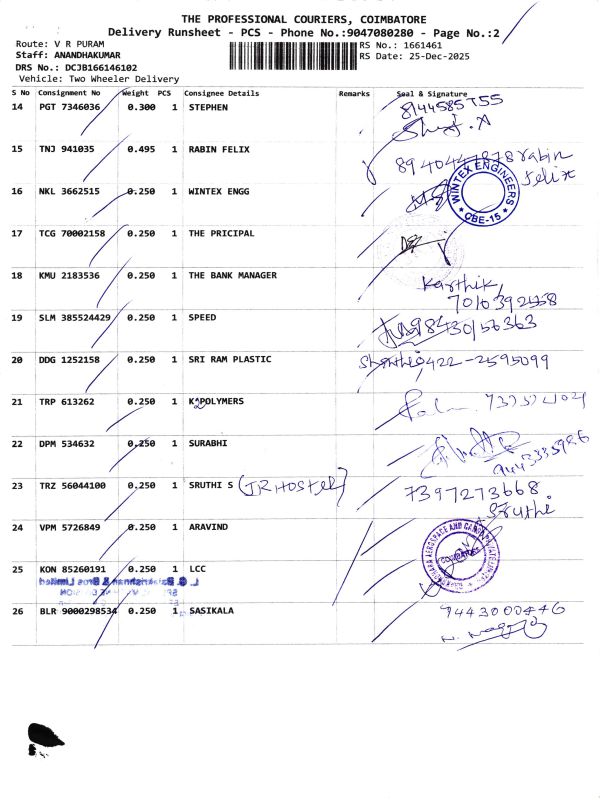 THE PROFESSIONAL COURIERS, COIMBATORE
Delivery Runsheet - PCS - Phone No.:9047080280 - Page No.:2
Route: V R PURAM
RS No.: 1661461
Staff: ANANDHAKUMAR
RS Date: 25-Dec-2025
DRS No.: DCJB166146102
Vehicle: Two Wheeler Delivery
S No Consignment No Weight PCS Consignee Details Remarks Seal & Signature
14 PGT 7346036 0.300 1 STEPHEN
15 TNJ 941035 0.495 1 RABIN FELIX rabin felix
16 NKL 3662515 0.250 1 WINTEX ENGG WINTEX ENGINEERS CBE-15
17 TCG 70002158 0.250 1 THE PRICIPAL
18 KMU 2183536 0.250 1 THE BANK MANAGER Karthik,
19 SLM 385524429 0.250 1 SPEED
20 DDG 1252158 0.250 1 SRI RAM PLASTIC 0422-2595099
21 TRP 613262 0.250 1 K POLYMERS
22 DPM 534632 0.250 1 SURABHI
23 TRZ 56044100 0.250 1 SRUTHI S (JR HOSTEL) 7397273668
Sruthi
24 VPM 5726849 0.250 1 ARAVIND
25 KON 85260191 0.250 1 LCC
26 BLR 9000298534 0.250 1 SASIKALA